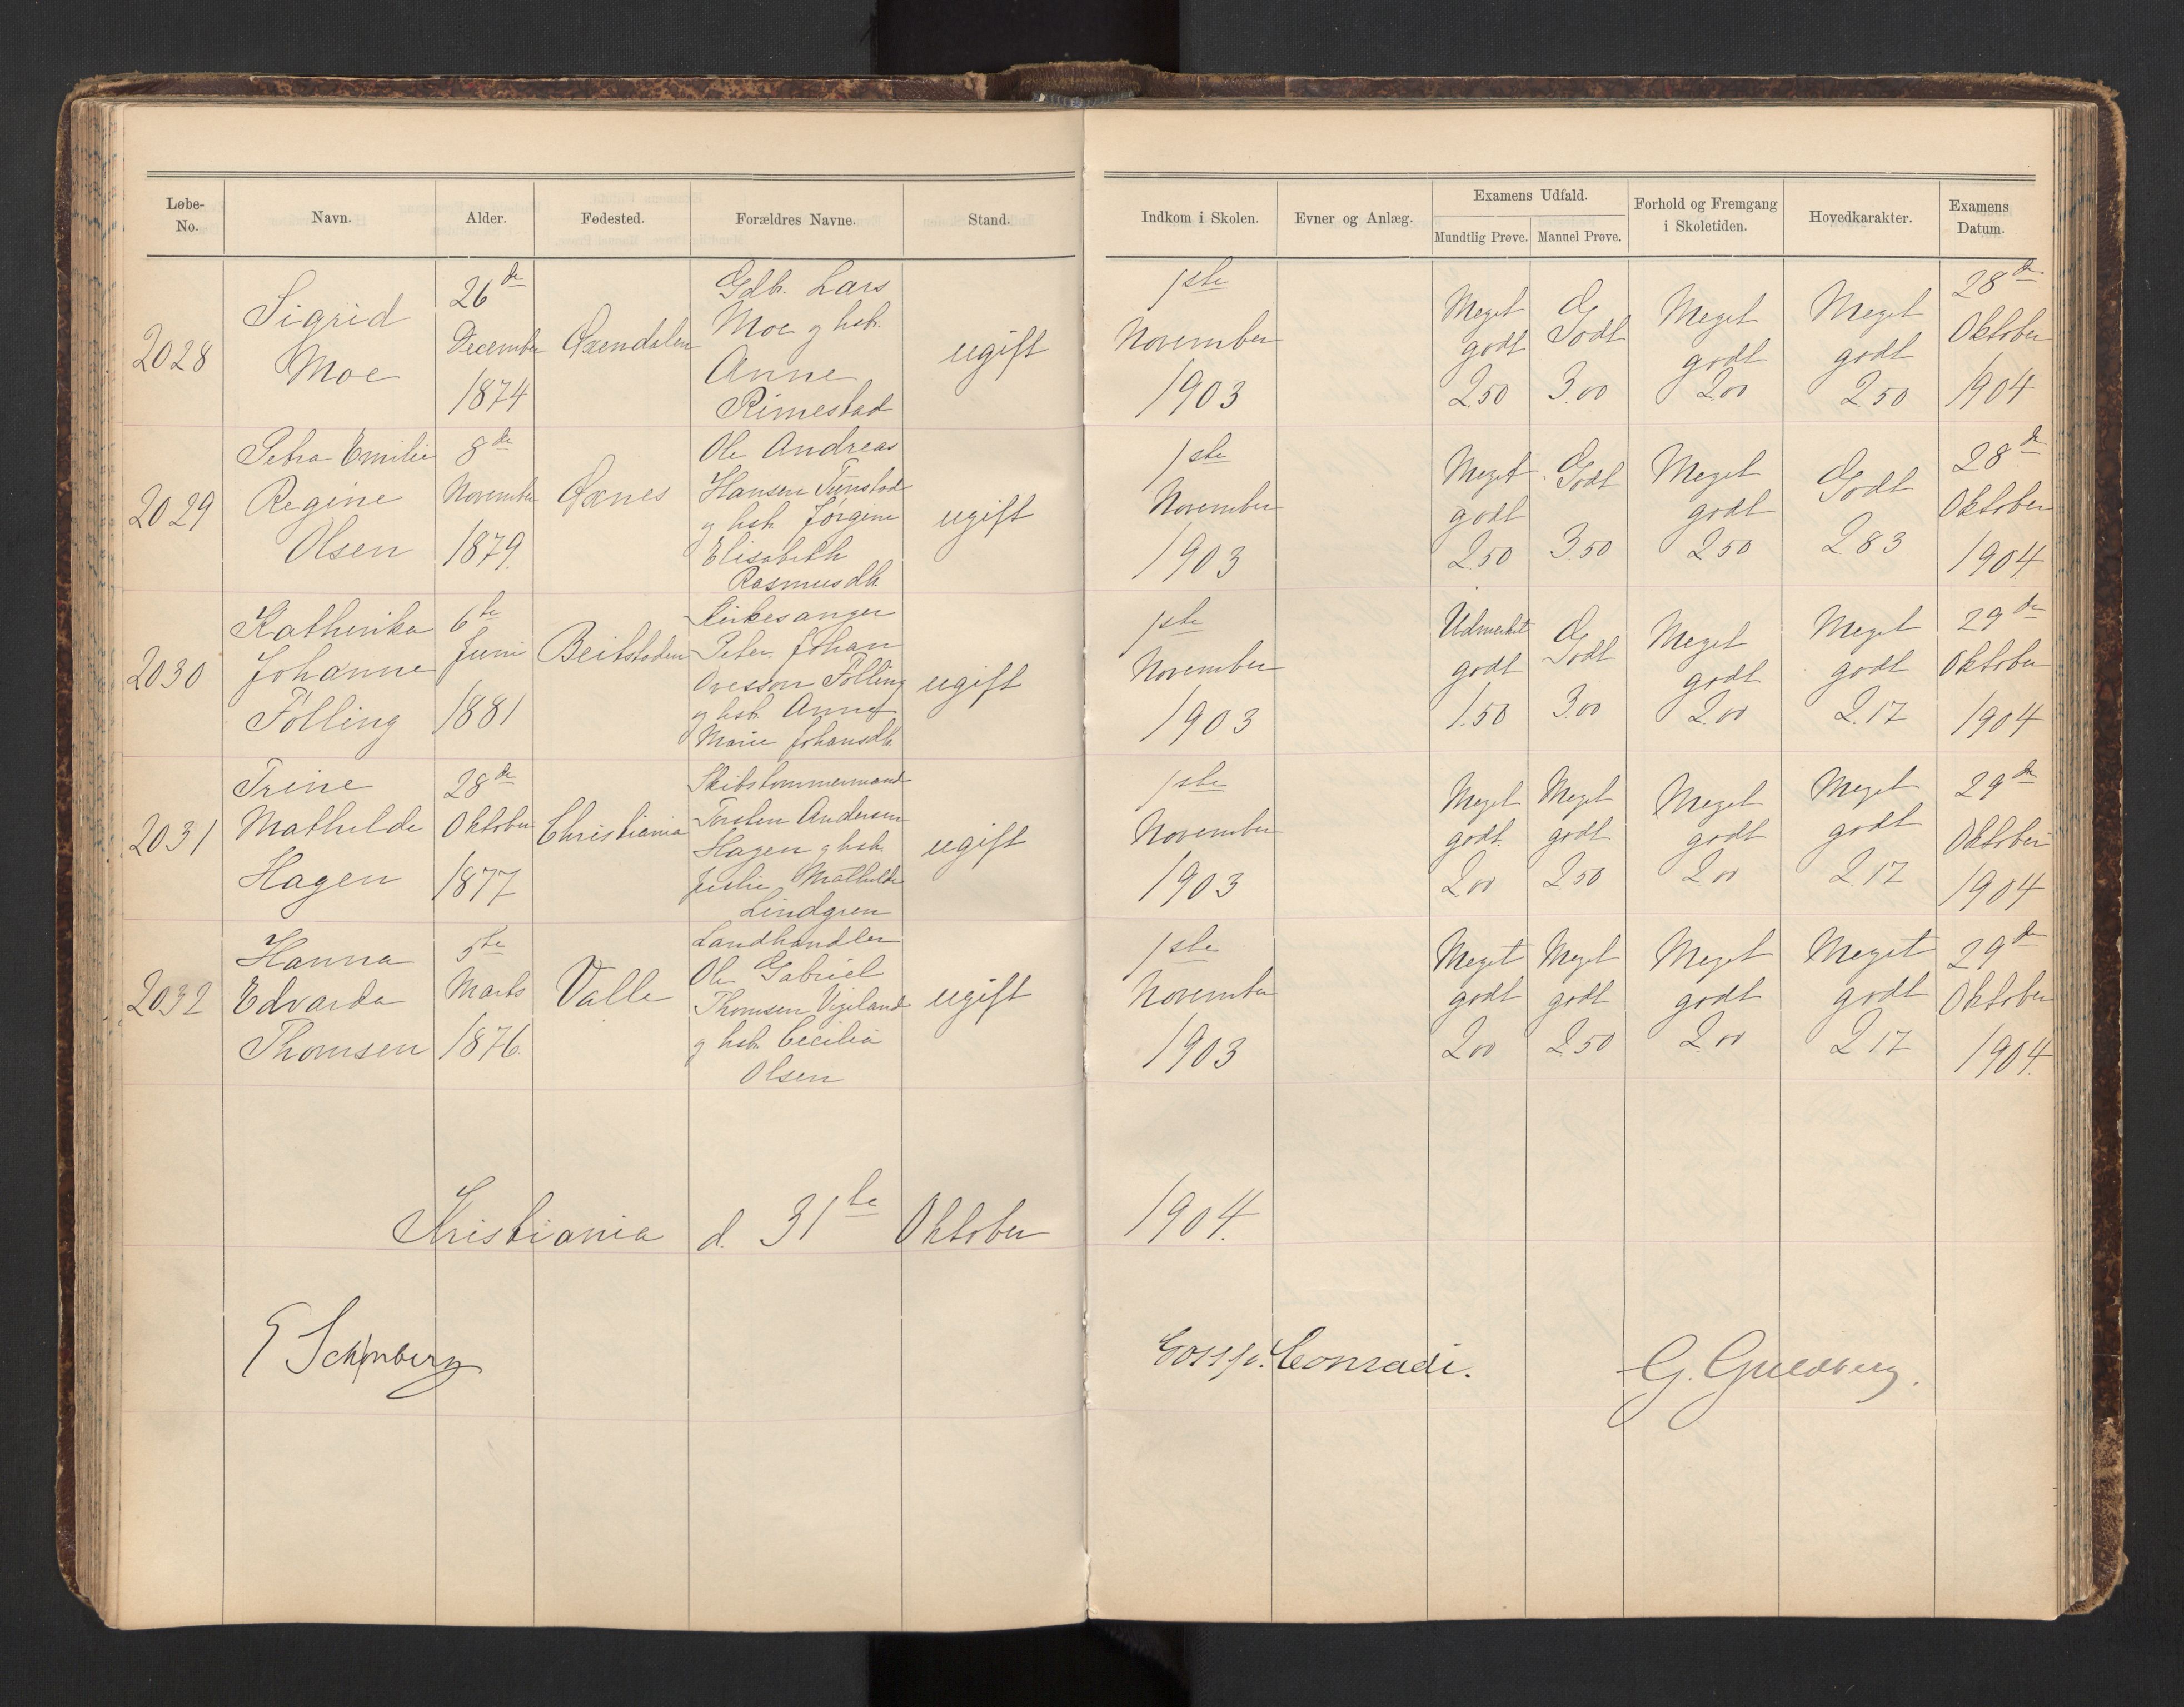 Løbe-No. Navn. Alder. Fødested. Forældres Navne. Stand. Indkom i Skolen. Evner og Anlæg. Examens Udfald. Mundtlig Prøve. Manuel Prøve. Forhold og Fremgang i Skoletiden. Hovedkarakter. Examens Datum.
2028
Sigrid
Moe
26de
December
1874
Øxendalen
Gdb. Lars
Moe og hst.
Anne
Rimestad
ugift
1ste
November
1903
Meget
godt
2.50
Godt
3.00
Meget
godt
2.00
Meget
godt
2.50
28de
Oktober
1904
2029
Petra Emilie
Regine
Olsen
8de
November
1879.
Øxnes
Ole Andreas
Hansen Tunstad
og hst. Jørgine
Elisabeth
Rasmusdt.
ugift
1ste
November
1903
Meget
godt
2.50
Godt
3.50
Meget
godt
2.50
Godt
2.83
28de
Oktober
1904
2030
Kathinka
Johanne
Følling
6te
Juni
1881
Beitstaden
Kirkesanger
Peter Johan
Ovesson Følling
og hst. Anne
Marie Johansdt.
ugift
1ste
November
1903
Udmerket
godt
1.50
Godt
3.00
Meget
godt
2.00
Meget
godt
2.17
29de
Oktober
1904
2031
Trine
Mathilde
Hagen
28de
Oktober
1877
Christiania
Skibstømmermand
Torsten Andersen
Hagen og hst.
Julie Mathilde
Lindgren
ugift
1ste
November
1903
Meget
godt.
2.00
Meget
godt
2.50
Meget
godt
2.00
Meget
godt
2.17
29de
Oktober
1904
2032
Hanna
Edvarda
Thomsen
5te
Marts
1876.
Valle
Landhandler
Ole Gabriel
Thomsen Vigeland
og hst. Cecilia
Olsen
ugift
1ste
November
1903
Meget
godt
2.00
Meget
godt
2.50
Meget
godt
2.00
Meget
godt
2.17
29de
Oktober
1904.
Kristiania d. 31te Oktober 1904.
E Schønberg
Conradi.
G. Guldberg.